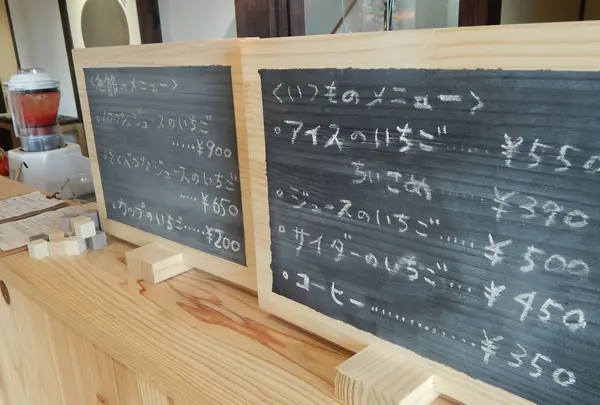 のメニュー>
ジュースのいちご
.....¥900
とくべつなジュースのいちご
.....¥650
・カップのいちご.....¥200
<いつものメニュー>
・アイスのいちご.......¥550
ちいさめ ¥390
・ジュースのいちご.....¥500
・サイダーのいちご....¥450
・コーヒー.............¥350